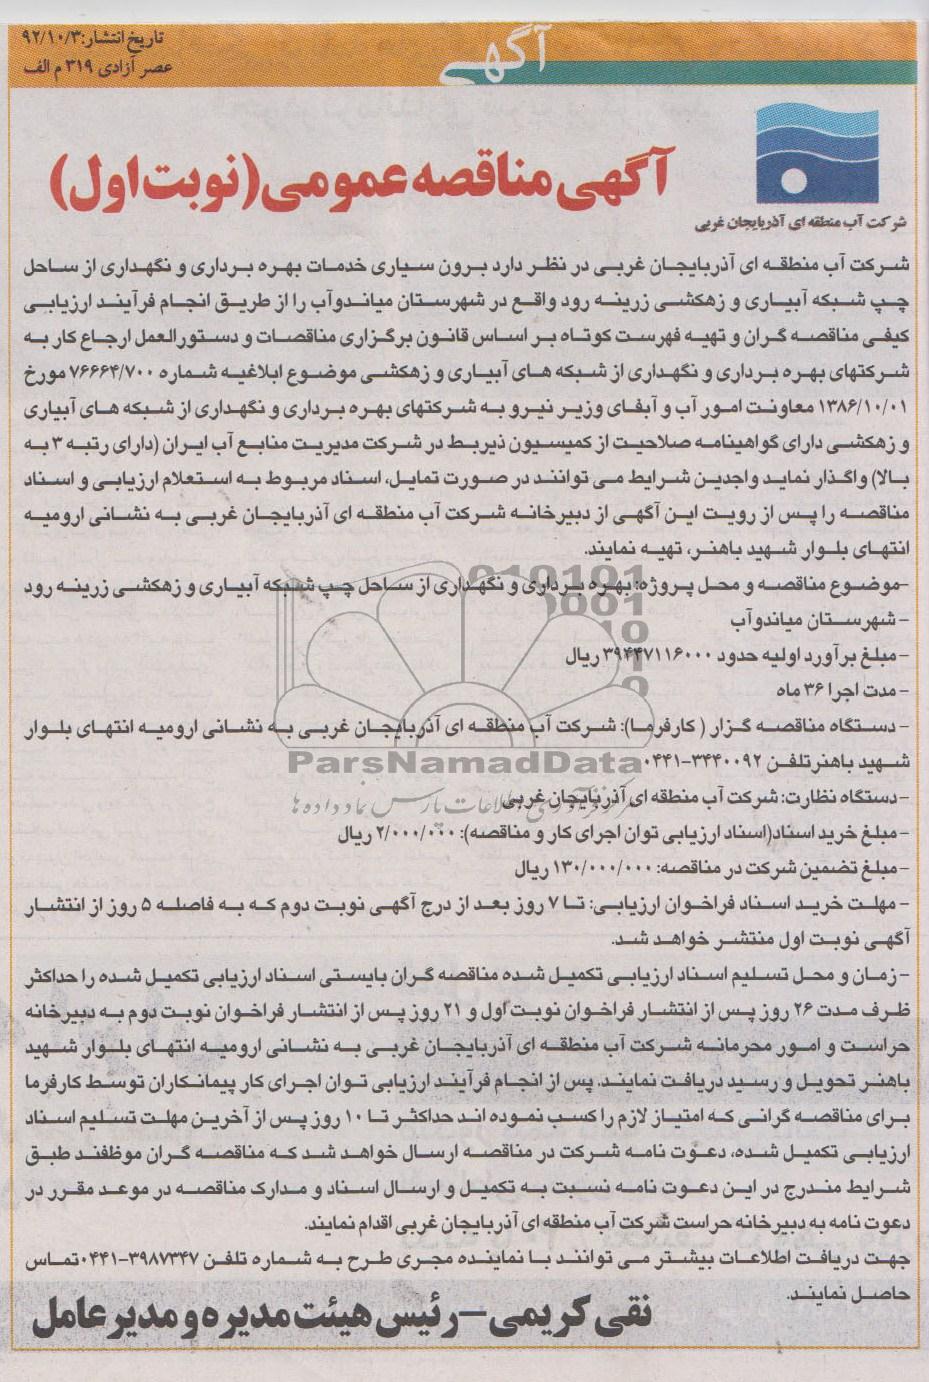 تاریخ انتشار: ۹۲/۱۰/۳
عصر آزادی ۳۱۹ م الف
آگهی
شرکت آب منطقه ای آذربایجان غربی
آگهی مناقصه عمومی (نوبت اول)
شرکت آب منطقه ای آذربایجان غربی در نظر دارد برون سپاری خدمات بهره برداری و نگهداری از ساحل
چپ شبکه آبیاری و زهکشی زرینه رود واقع در شهرستان میاندوآب را از طریق انجام فرآیند ارزیابی
کیفی مناقصه گران و تهیه فهرست کوتاه بر اساس قانون برگزاری مناقصات و دستورالعمل ارجاع کار به
شرکتهای بهره برداری و نگهداری از شبکه های آبیاری و زهکشی موضوع ابلاغیه شماره ۷۶۶۶۴/۷۰۰ مورخ
۱۳۸۶/۱۰/۰۱ معاونت امور آب و آبفای وزیر نیرو به شرکتهای بهره برداری و نگهداری از شبکه های آبیاری
و زهکشی دارای گواهینامه صلاحیت از کمیسیون ذیربط در شرکت مدیریت منابع آب ایران (دارای رتبه ۳ به
بالا) واگذار نماید واجدین شرایط می توانند در صورت تمایل، اسناد مربوط به استعلام ارزیابی و اسناد
مناقصه را پس از رویت این آگهی از دبیرخانه شرکت آب منطقه ای آذربایجان غربی به نشانی ارومیه
انتهای بلوار شهید باهنر، تهیه نمایند.
-موضوع مناقصه و محل پروژه: بهره برداری و نگهداری از ساحل چپ شبکه آبیاری و زهکشی زرینه رود
- شهرستان میاندوآب
- مبلغ برآورد اولیه حدود ۳۹۴۴۷۱۱۶۰۰۰ ریال
- مدت اجرا ۳۶ ماه
- دستگاه مناقصه گزار ( کارفرما): شرکت آب منطقه ای آذربایجان غربی به نشانی ارومیه انتهای بلوار
شهید باهنر تلفن ۳۴۴۰۰۹۲-۰۴۴۱
-دستگاه نظارت: شرکت آب منطقه ای آذربایجان غربی
- مبلغ خرید اسناد(اسناد ارزیابی توان اجرای کار و مناقصه): ۲/۰۰۰/۰۰۰ ریال
- مبلغ تضمین شرکت در مناقصه: ۱۳۰/۰۰۰/۰۰۰ ریال
- مهلت خرید اسناد فراخوان ارزیابی: تا ۷ روز بعد از درج آگهی نوبت دوم که به فاصله ۵ روز از انتشار
آگهی نوبت اول منتشر خواهد شد.
- زمان و محل تسلیم اسناد ارزیابی تکمیل شده مناقصه گران بایستی اسناد ارزیابی تکمیل شده را حداکثر
ظرف مدت ۲۶ روز پس از انتشار فراخوان نوبت اول و ۲۱ روز پس از انتشار فراخوان نوبت دوم به دبیرخانه
حراست و امور محرمانه شرکت آب منطقه ای آذربایجان غربی به نشانی ارومیه انتهای بلوار شهید
باهنر تحویل و رسید دریافت نمایند. پس از انجام فرآیند ارزیابی توان اجرای کار پیمانکاران توسط کارفرما
برای مناقصه گرانی که امتیاز لازم را کسب نموده اند حداکثر تا ۱۰ روز پس از آخرین مهلت تسلیم اسناد
ارزیابی تکمیل شده، دعوت نامه شرکت در مناقصه ارسال خواهد شد که مناقصه گران موظفند طبق
شرایط مندرج در این دعوت نامه نسبت به تکمیل و ارسال اسناد و مدارک مناقصه در موعد مقرر در
دعوت نامه به دبیرخانه حراست شرکت آب منطقه ای آذربایجان غربی اقدام نمایند.
جهت دریافت اطلاعات بیشتر می توانند با نماینده مجری طرح به شماره تلفن ۳۹۸۷۳۴۷-۰۴۴۱ تماس
حاصل نمایند.
نقی کریمی - رئیس هیئت مدیره و مدیر عامل
ParsNamadData
مرکز فرآوری اطلاعات پارس نماد داده ها